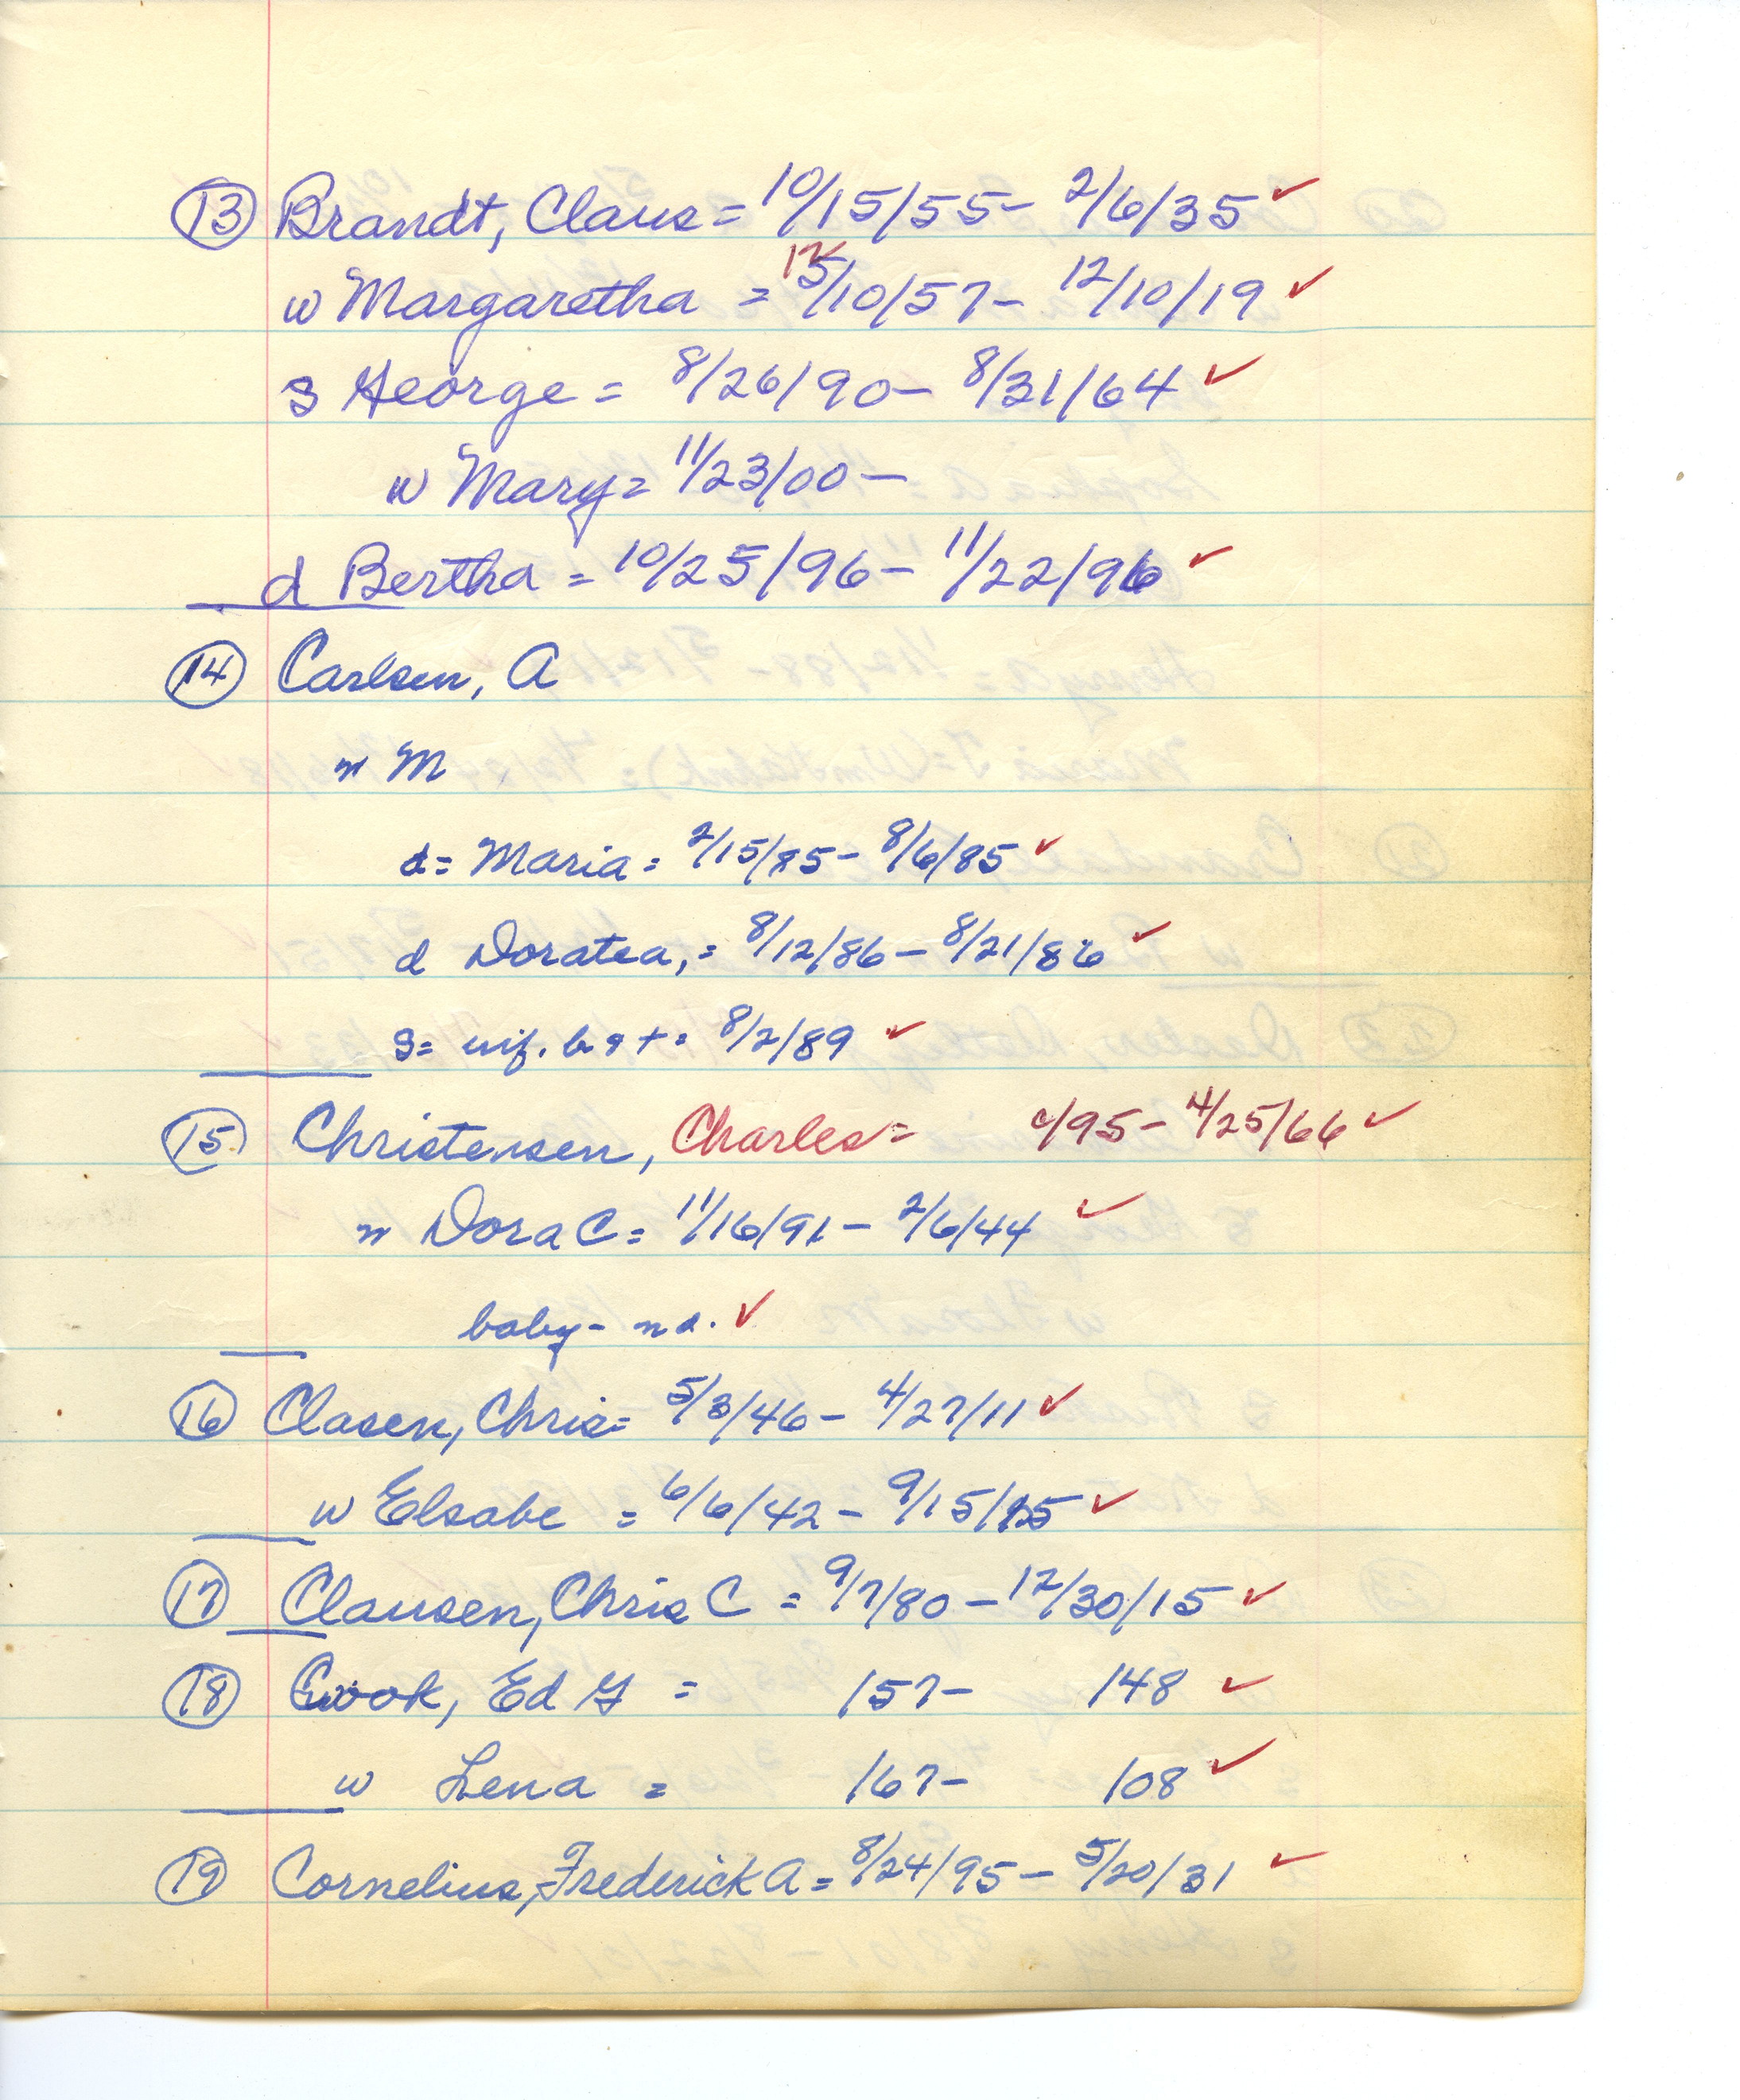 13 Brandt, Claus = 10/15/55 - 2/6/35 ✓
12
w Margaretha = 5/10/57 - 12/10/19 ✓
s George = 8/26/90 - 8/31/64 ✓
w Mary = 11/23/00 -
d Bertha = 10/25/96 - 11/22/96 ✓
14 Carlsen, A
w M
d = Maria = 2/15/85 - 8/6/85 ✓
d Doratea, = 8/12/86 - 8/21/86 ✓
s = inf. b & + = 8/2/89 ✓
15 Christensen, Charles = /95 - 4/25/66 ✓
w Dora C = 11/16/91 - 2/6/44 ✓
baby - nd. ✓
16 Clasen, Chris = 5/3/46 - 4/27/11 ✓
w Elsabe = 6/6/42 - 9/15/ ✓
17 Clausen, Chris C = 9/7/80 - 12/30/15 ✓
18 Cook, Ed G = /57 - /48 ✓
w Lena = /67 - /08 ✓
19 Cornelius, Frederick A = 8/24/95 - 5/20/31 ✓